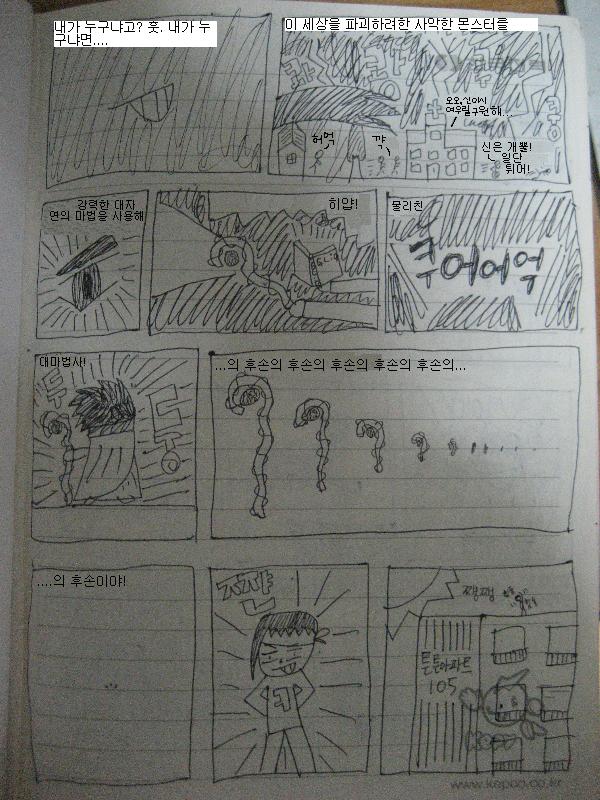 내가 누구냐고? 훗. 내가 누
구냐면....
이 세상을 파괴하려한 사악한 몬스터를
오오, 신이시
여 우릴 구원해...
허걱
꺅
신은 개뿔!
일단
튀어!
강력한 대자
연의 마법을 사용해
히얍!
물리친
쿠어어억
대마법사!
두
둥
...의 후손의 후손의 후손의 후손의 후손의...
....의 후손이야!
쟈쟌
쨍쨍
튼튼아파트
105
www.kepco.co.kr